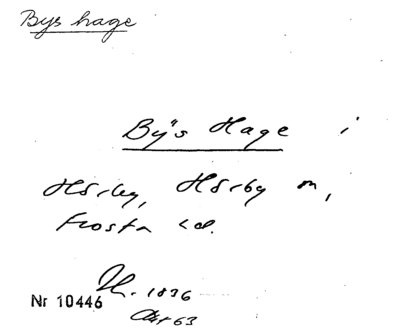 Bys hage
By's Hage i
Hörby, Hörby sn,
Frosta hd.
1836
Nr 10446
Akt 63